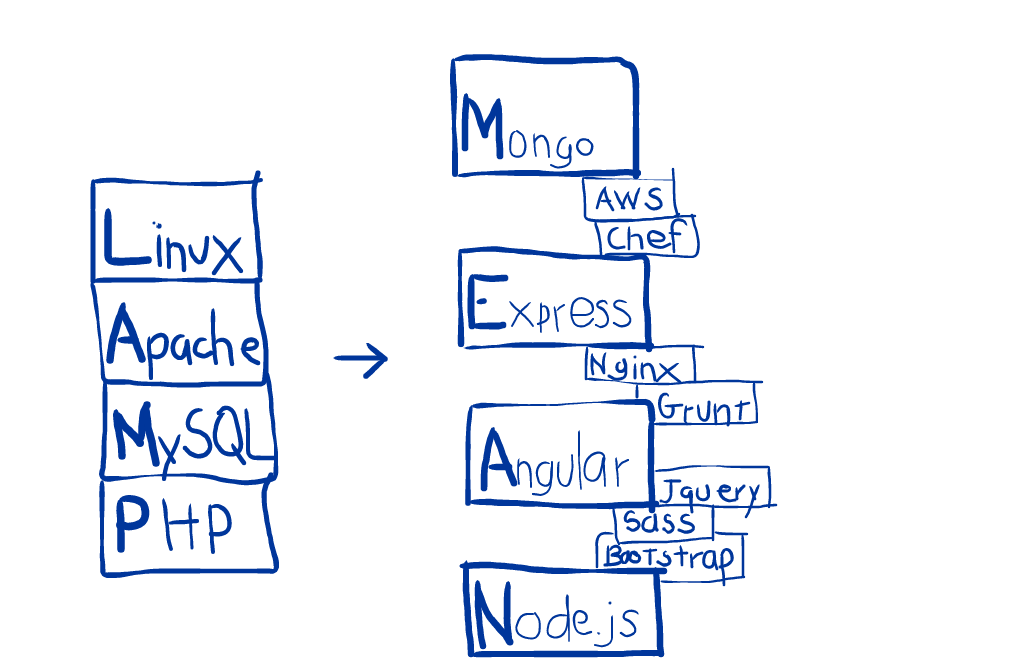 Linux
Apache
MySQL
PHP
Mongo
AWS
Chef
Express
Nginx
Grunt
Angular
Jquery
Sass
Bootstrap
Node.js